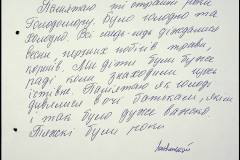 Пам'ятаю ті страшні роки
Голодомору. Було голодно та
холодно. Всі люди ждали
весни, перших побігів трави,
корнів. Ми діти були дуже
раді коли знаходили щось
їстівне. Пам'ятаю як голодні
дивилися в очі батькам, яким
і так було дуже важко
Тяжкі були роки